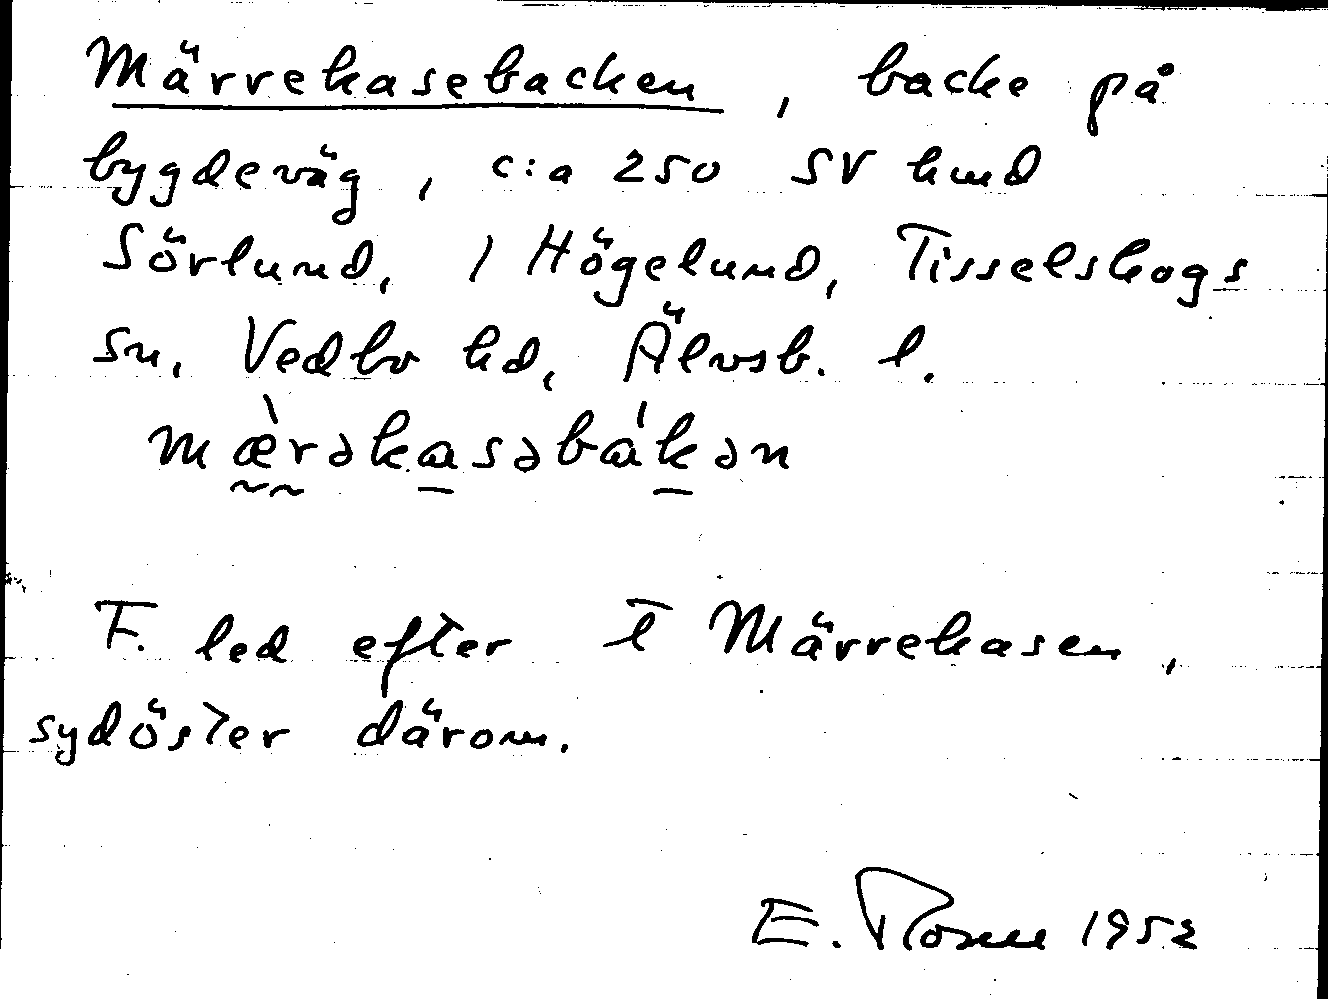 Märrekasebacken, backe på
bygdeväg, c:a 250 SV hmd
Sörlund, 1 Högelund, Tisselskogs
sn, Vedbo hd, Älvsb. l.
mæ̀rəkasəbákən
F. led efter t Märrekasen,
sydöster därom.
E. Rosell 1952